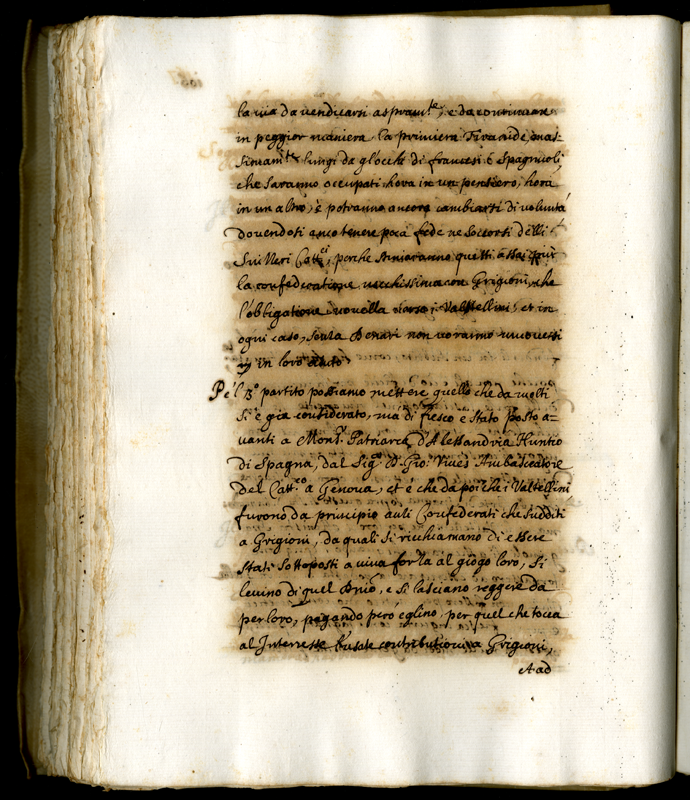 la via da vendicarsi aspram.te, e da continuare
in peggior maniera la primiera Tirannide, mas-
simam.te lungi da gl'occhi di francesi e Spagnuoli,
che saranno occupati hora in un pensiero, hora
in un altro, e potranno ancora cambiarsi di voluntà
dovendosi anco tenere poca fede ne soccorsi delli
Svizzeri Catt.ci, perche stimaranno questi assai più
la confederatione vecchissima con Grigioni, che
l'obligatione novella verso i Valtellini; et in
ogni caso, senza Denari non vorranno muoversi
in loro aiuto
Pe'l 3.o partito possiamo mettere quello che da molti
si è gia considerato, ma di fresco è stato posto a-
vanti a Mons.r Patriarca d'Alessandria Nuntio
di Spagna, dal Sig.r D. Gio: Vives Ambasciatore
del Catt.co a Genova, et è che da poi che i Valtellini
furono da principio anzi Confederati che sudditi
a Grigioni, da quali si richiamano di essere
stati sottoposti a viva forza al giogo loro, si
levino di quel Dnio, e si lasciano reggere da
per loro, pagando però eglino per quel che tocca
al Interesse l'usate contributioni a Grigioni,
et ad